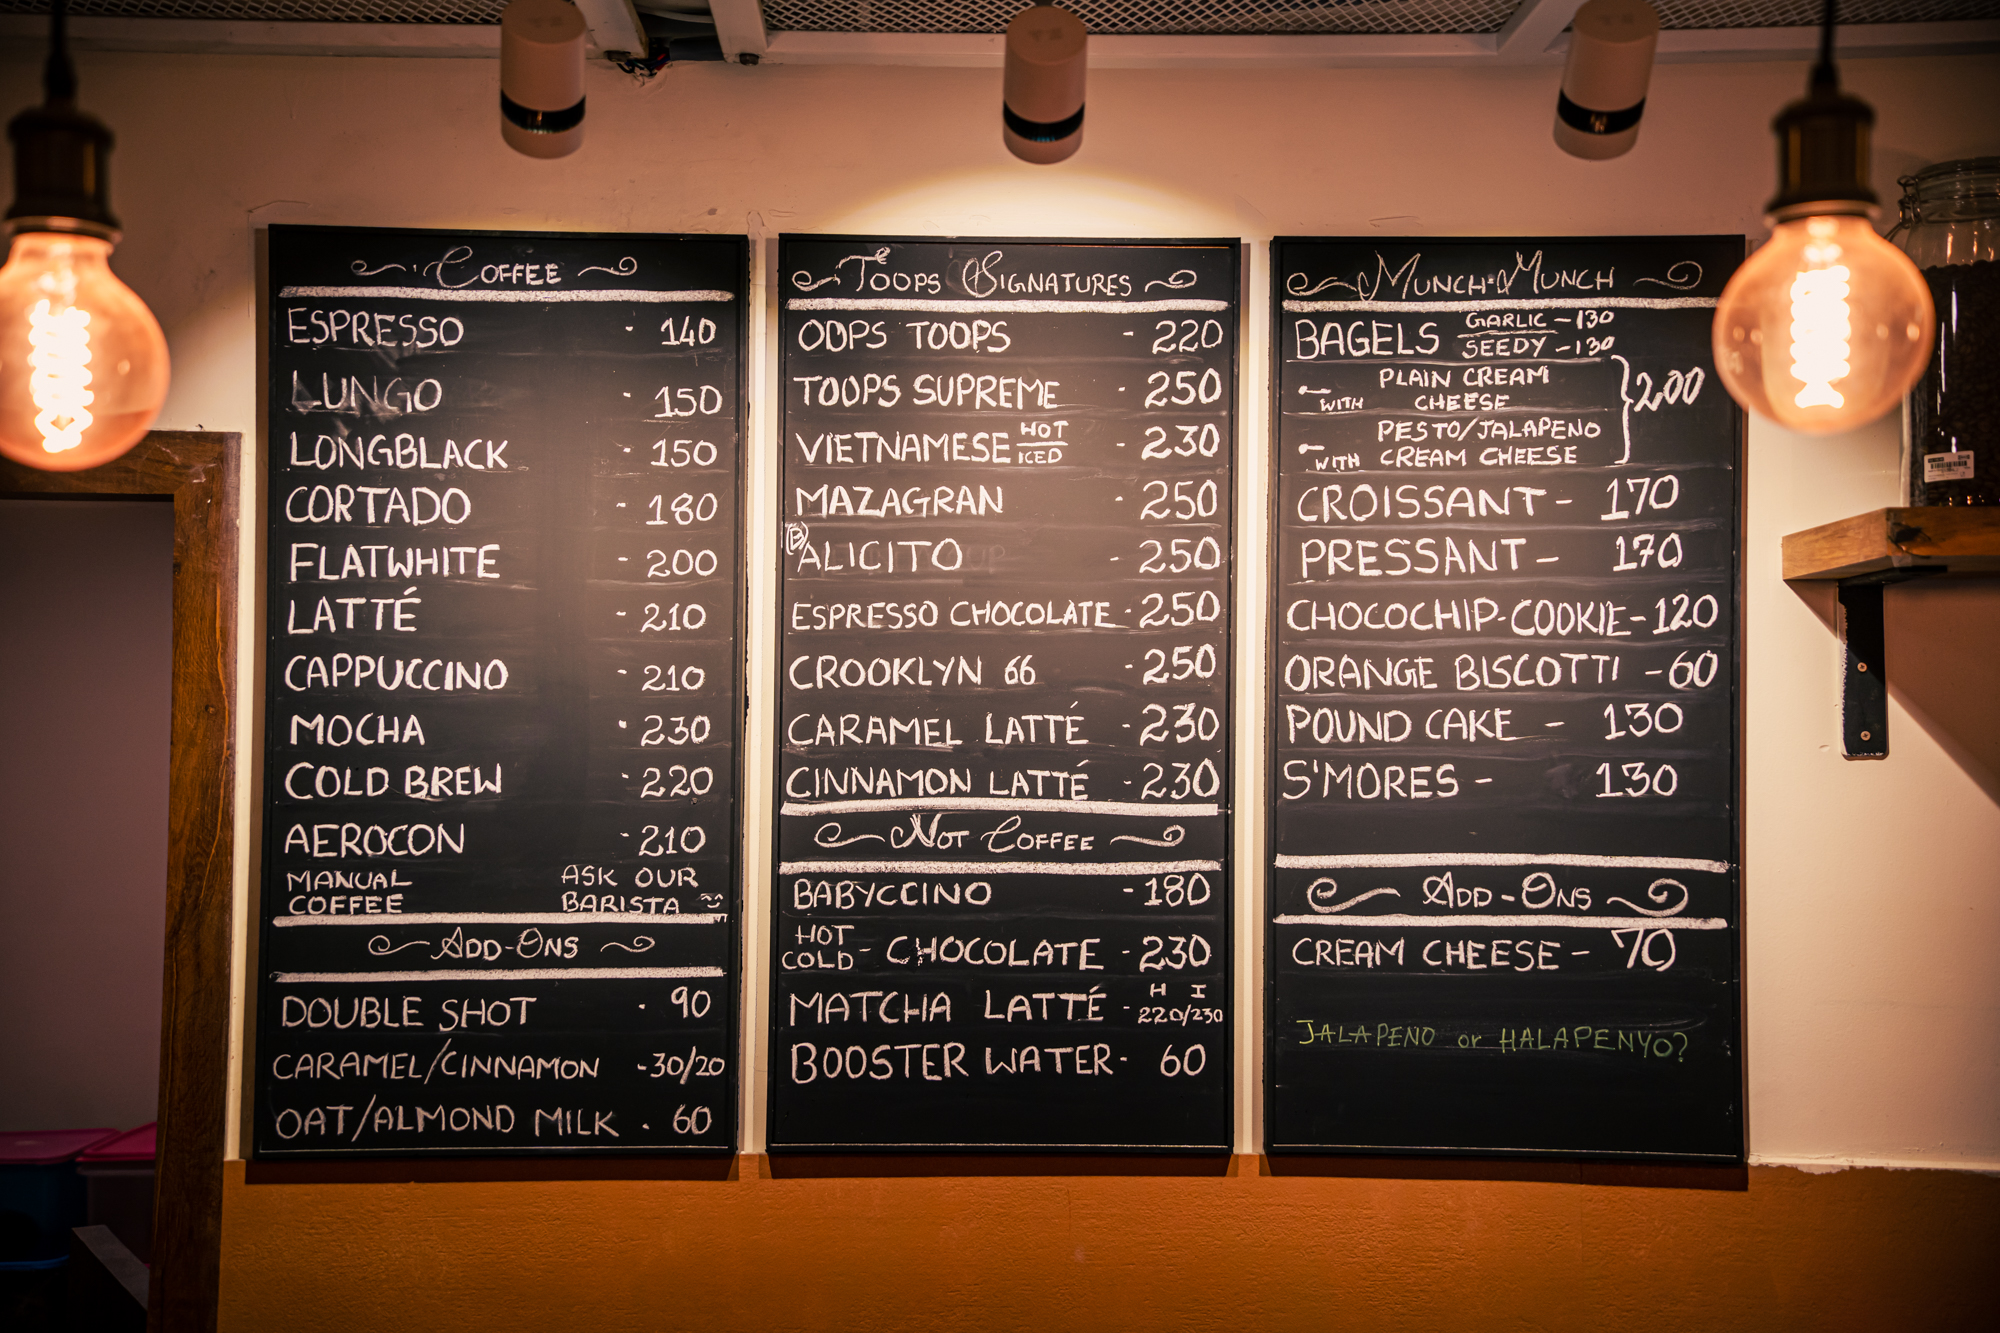 COFFEE
ESPRESSO - 140
LUNGO - 150
LONGBLACK - 150
CORTADO - 180
FLATWHITE - 200
LATTÉ - 210
CAPPUCCINO - 210
MOCHA - 230
COLD BREW - 220
AEROCON - 210
MANUAL ASK OUR
COFFEE BARISTA
ADD-ONS
DOUBLE SHOT - 90
CARAMEL/CINNAMON -30/20
OAT/ALMOND MILK - 60
TOOPS SIGNATURES
OOPS TOOPS - 220
TOOPS SUPREME - 250
VIETNAMESE HOT ICED - 230
MAZAGRAN - 250
(B)ALICITO - 250
ESPRESSO CHOCOLATE - 250
CROOKLYN 66 - 250
CARAMEL LATTÉ - 230
CINNAMON LATTÉ - 230
NOT COFFEE
BABYCCINO - 180
HOT COLD - CHOCOLATE - 230
H I
MATCHA LATTÉ - 220/230
BOOSTER WATER - 60
MUNCH-MUNCH
BAGELS GARLIC - 130
SEEDY - 130
PLAIN CREAM
WITH CHEESE
200
PESTO/JALAPENO
WITH CREAM CHEESE
CROISSANT - 170
PRESSANT - 170
CHOCOCHIP-COOKIE - 120
ORANGE BISCOTTI - 60
POUND CAKE - 130
S'MORES - 130
ADD-ONS
CREAM CHEESE - 70
JALAPENO or HALAPENYO?